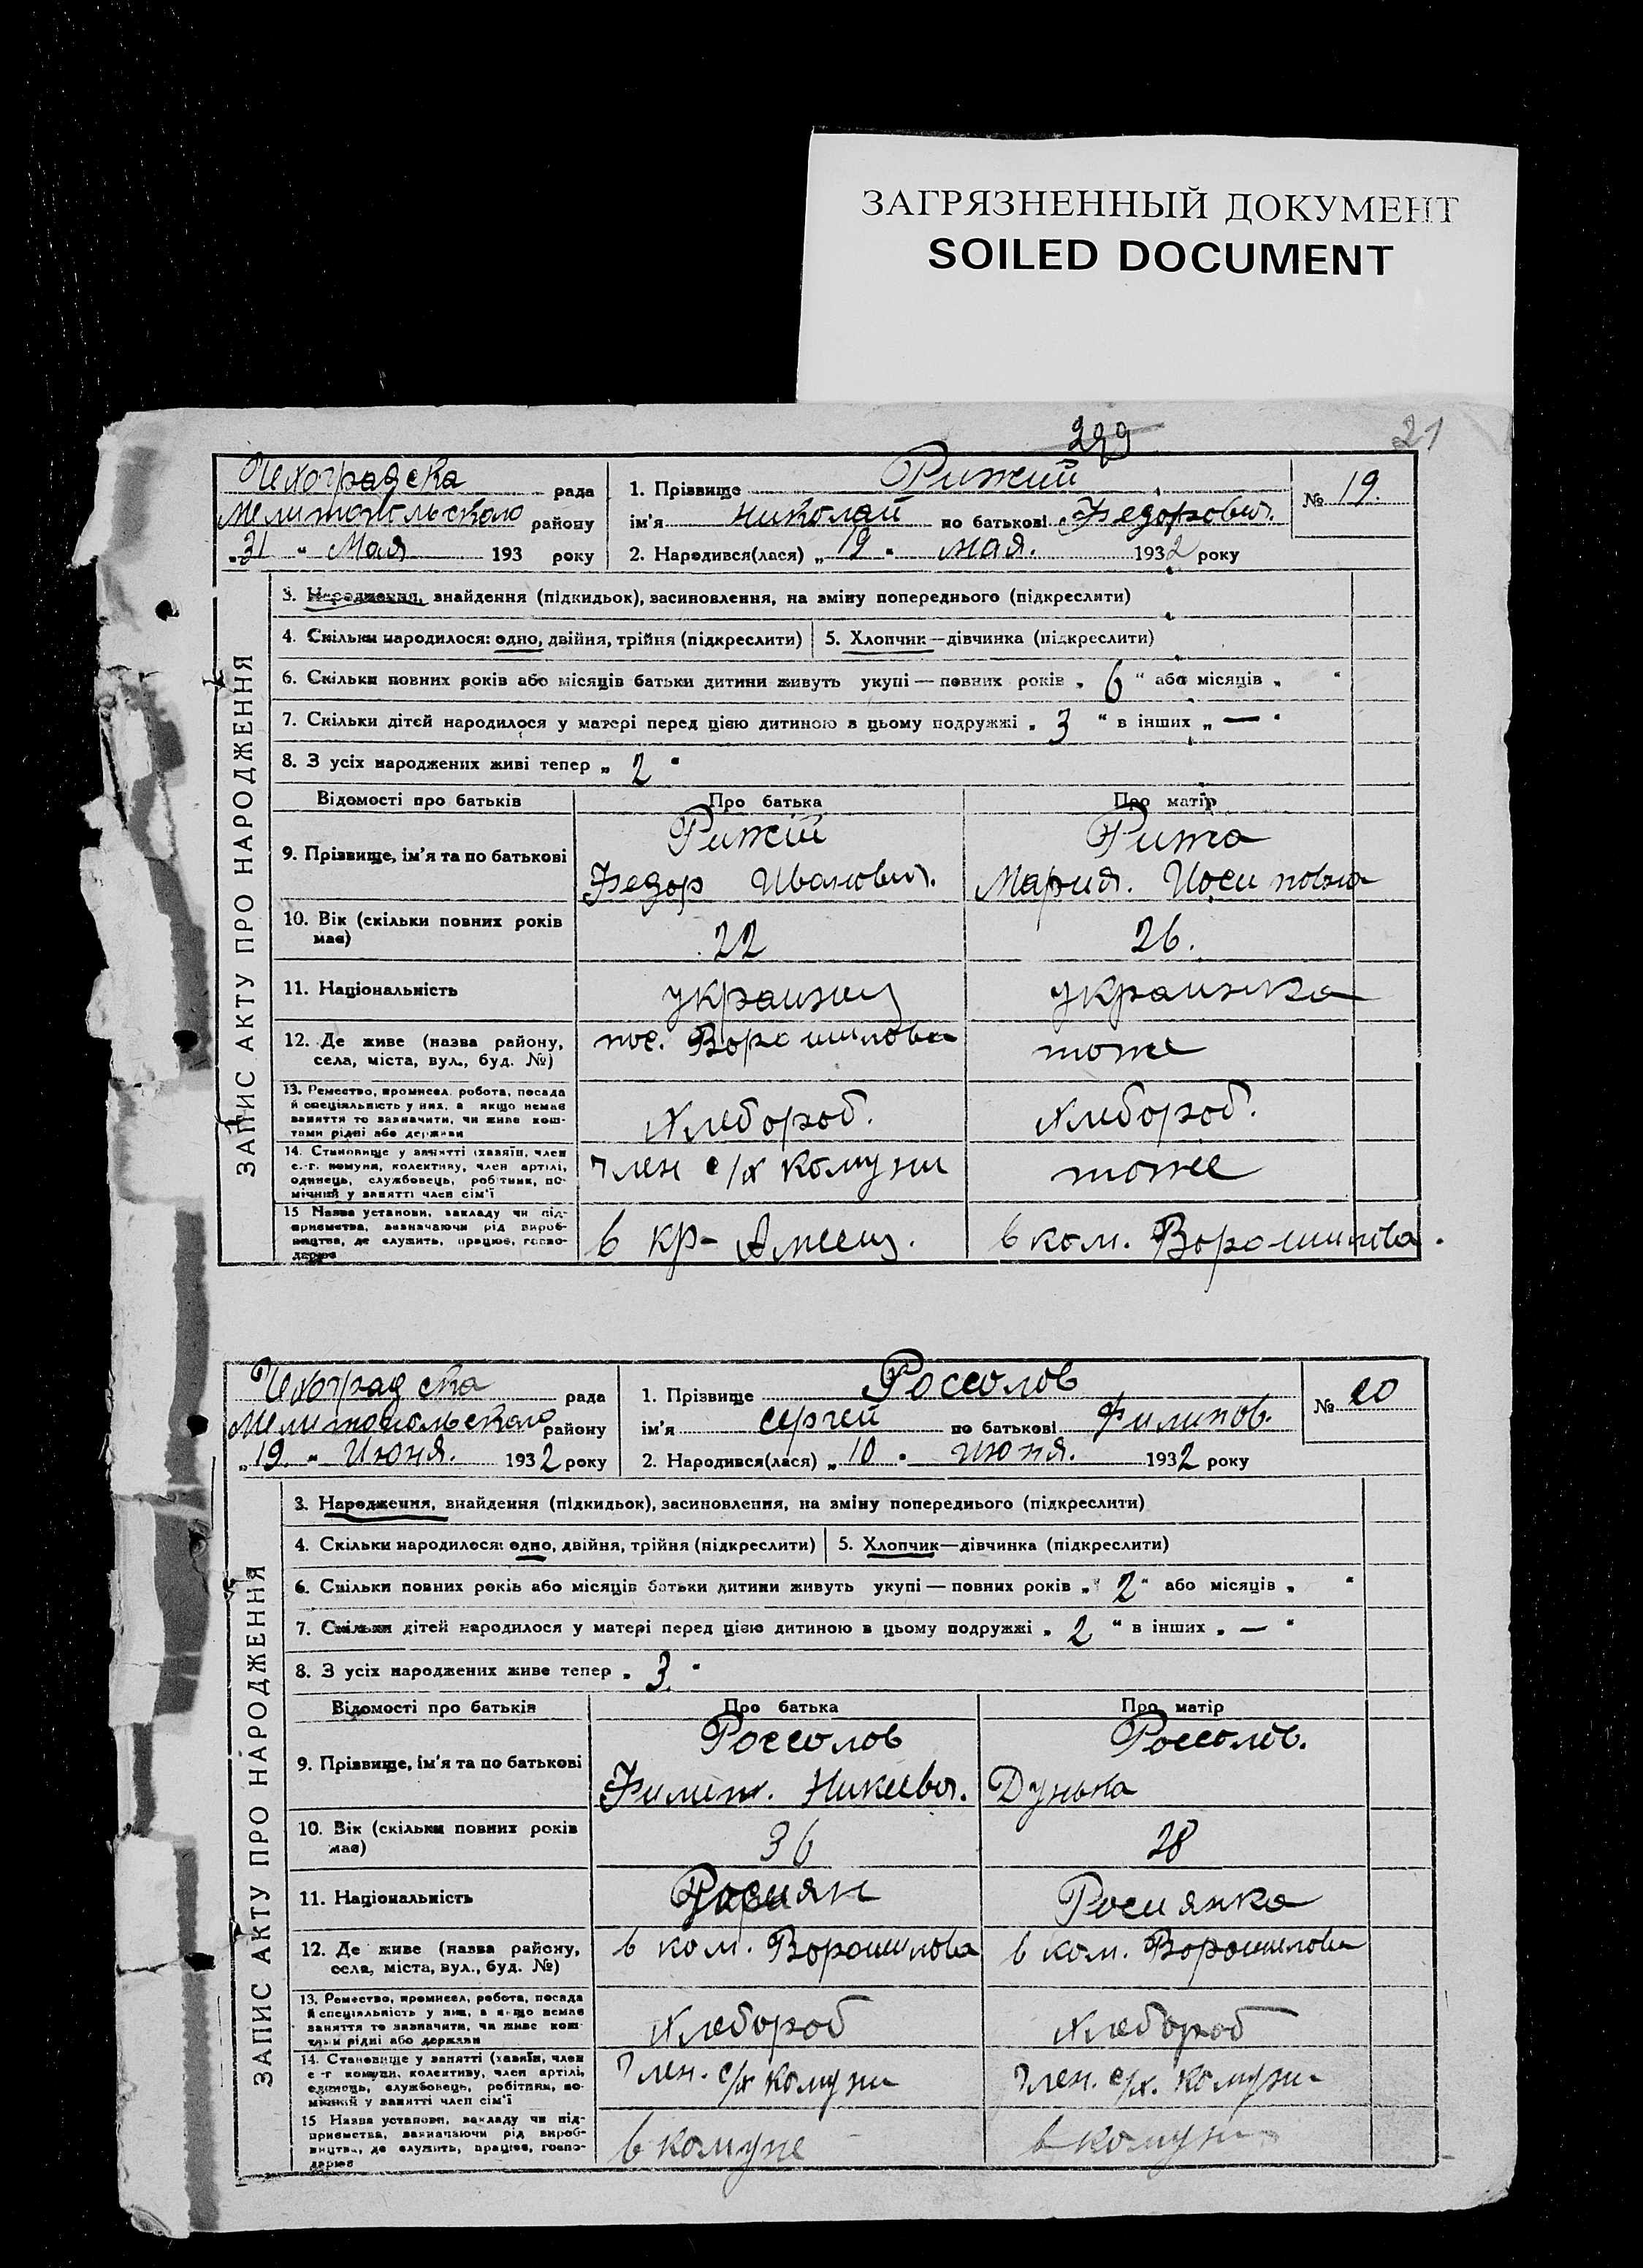 ЗАГРЯЗНЕННЫЙ ДОКУМЕНТ
SOILED DOCUMENT
299 21
Чехоградска рада
Мелитопольского району
„31 “ Мая 193 року
1. Прізвище Рижий
ім'я Николай по батькові Федорович.
2. Народився(лася) „19 “ мая. 1932 року
№ 19.
ЗАПИС АКТУ ПРО НАРОДЖЕННЯ
3. Народження, знайдення (підкидьок), засиновлення, на зміну попереднього (підкреслити)
4. Скільки народилося: одно, двійня, трійня (підкреслити) 5. Хлопчик—дівчинка (підкреслити)
6. Скільки повних років або місяців батьки дитини живуть укупі — повних років „ 6 “ або місяців „ “
7. Скільки дітей народилося у матері перед цією дитиною в цьому подружжі „ 3 “ в інших „ — “
8. З усіх народжених живі тепер „ 2 “
Відомості про батьків Про батька Про матір
9. Прізвище, ім'я та по батькові
Рижій
Федор Иванович.
Рижа
Мария. Иосиповна
10. Вік (скільки повних років має) 22 26.
11. Національність украинец украинка
12. Де живе (назва району, села, міста, вул., буд. №) пос. Ворошилова тоже
13. Ремество, промисел, робота, посада й спеціяльність у них, а якщо немає заняття то зазначити, чи живе коштами рідні або держави
Хлебороб. Хлебороб.
14. Становище у занятті (хазяїн, член с.-г. комуни, колективу, член артілі, одинець, службовець, робітник, помічний у занятті член сім'ї
член с/х комуни тоже
15 Назва установи, закладу чи підприємства, зазначаючи рід виробництва, де служить, працює, господарює
в кр- в ком. Ворошилова.
Чехоградска рада
Мелитопольского району
„19. “ Июня. 1932 року
1. Прізвище Россолов
ім'я Сергей по батькові Филипов.
2. Народився(лася) „ 10 “ июня. 1932 року
№ 20
ЗАПИС АКТУ ПРО НАРОДЖЕННЯ
3. Народження, знайдення (підкидьок), засиновлення, на зміну попереднього (підкреслити)
4. Скільки народилося: одно, двійня, трійня (підкреслити) 5. Хлопчик—дівчинка (підкреслити)
6. Скільки повних років або місяців батьки дитини живуть укупі — повних років „ 2 “ або місяців „ “
7. Скільки дітей народилося у матері перед цією дитиною в цьому подружжі „ 2 “ в інших „ — “
8. З усіх народжених живе тепер „ 3. “
Відомості про батьків Про батька Про матір
9. Прізвище, ім'я та по батькові
Россолов
Филип.
Россолов.
10. Вік (скільки повних років має) 36 28
11. Національність Росиян Росиянка
12. Де живе (назва району, села, міста, вул., буд. №) в ком. Ворошилова в ком. Ворошилова
13. Ремество, промисел, робота, посада й спеціяльність у них, а якщо немає заняття то зазначити, чи живе коштами рідні або держави
Хлебороб Хлебороб
14. Становище у занятті (хазяїн, член с.-г комуни, колективу, член артілі, одинець, службовець, робітник, помічний у занятті член сім'ї
Член. с/х комуни Член. с/х. комуни
15 Назва установи, закладу чи підприємства, зазначаючи рід виробництва, де служить, працює, господарює
в комуне в комуни